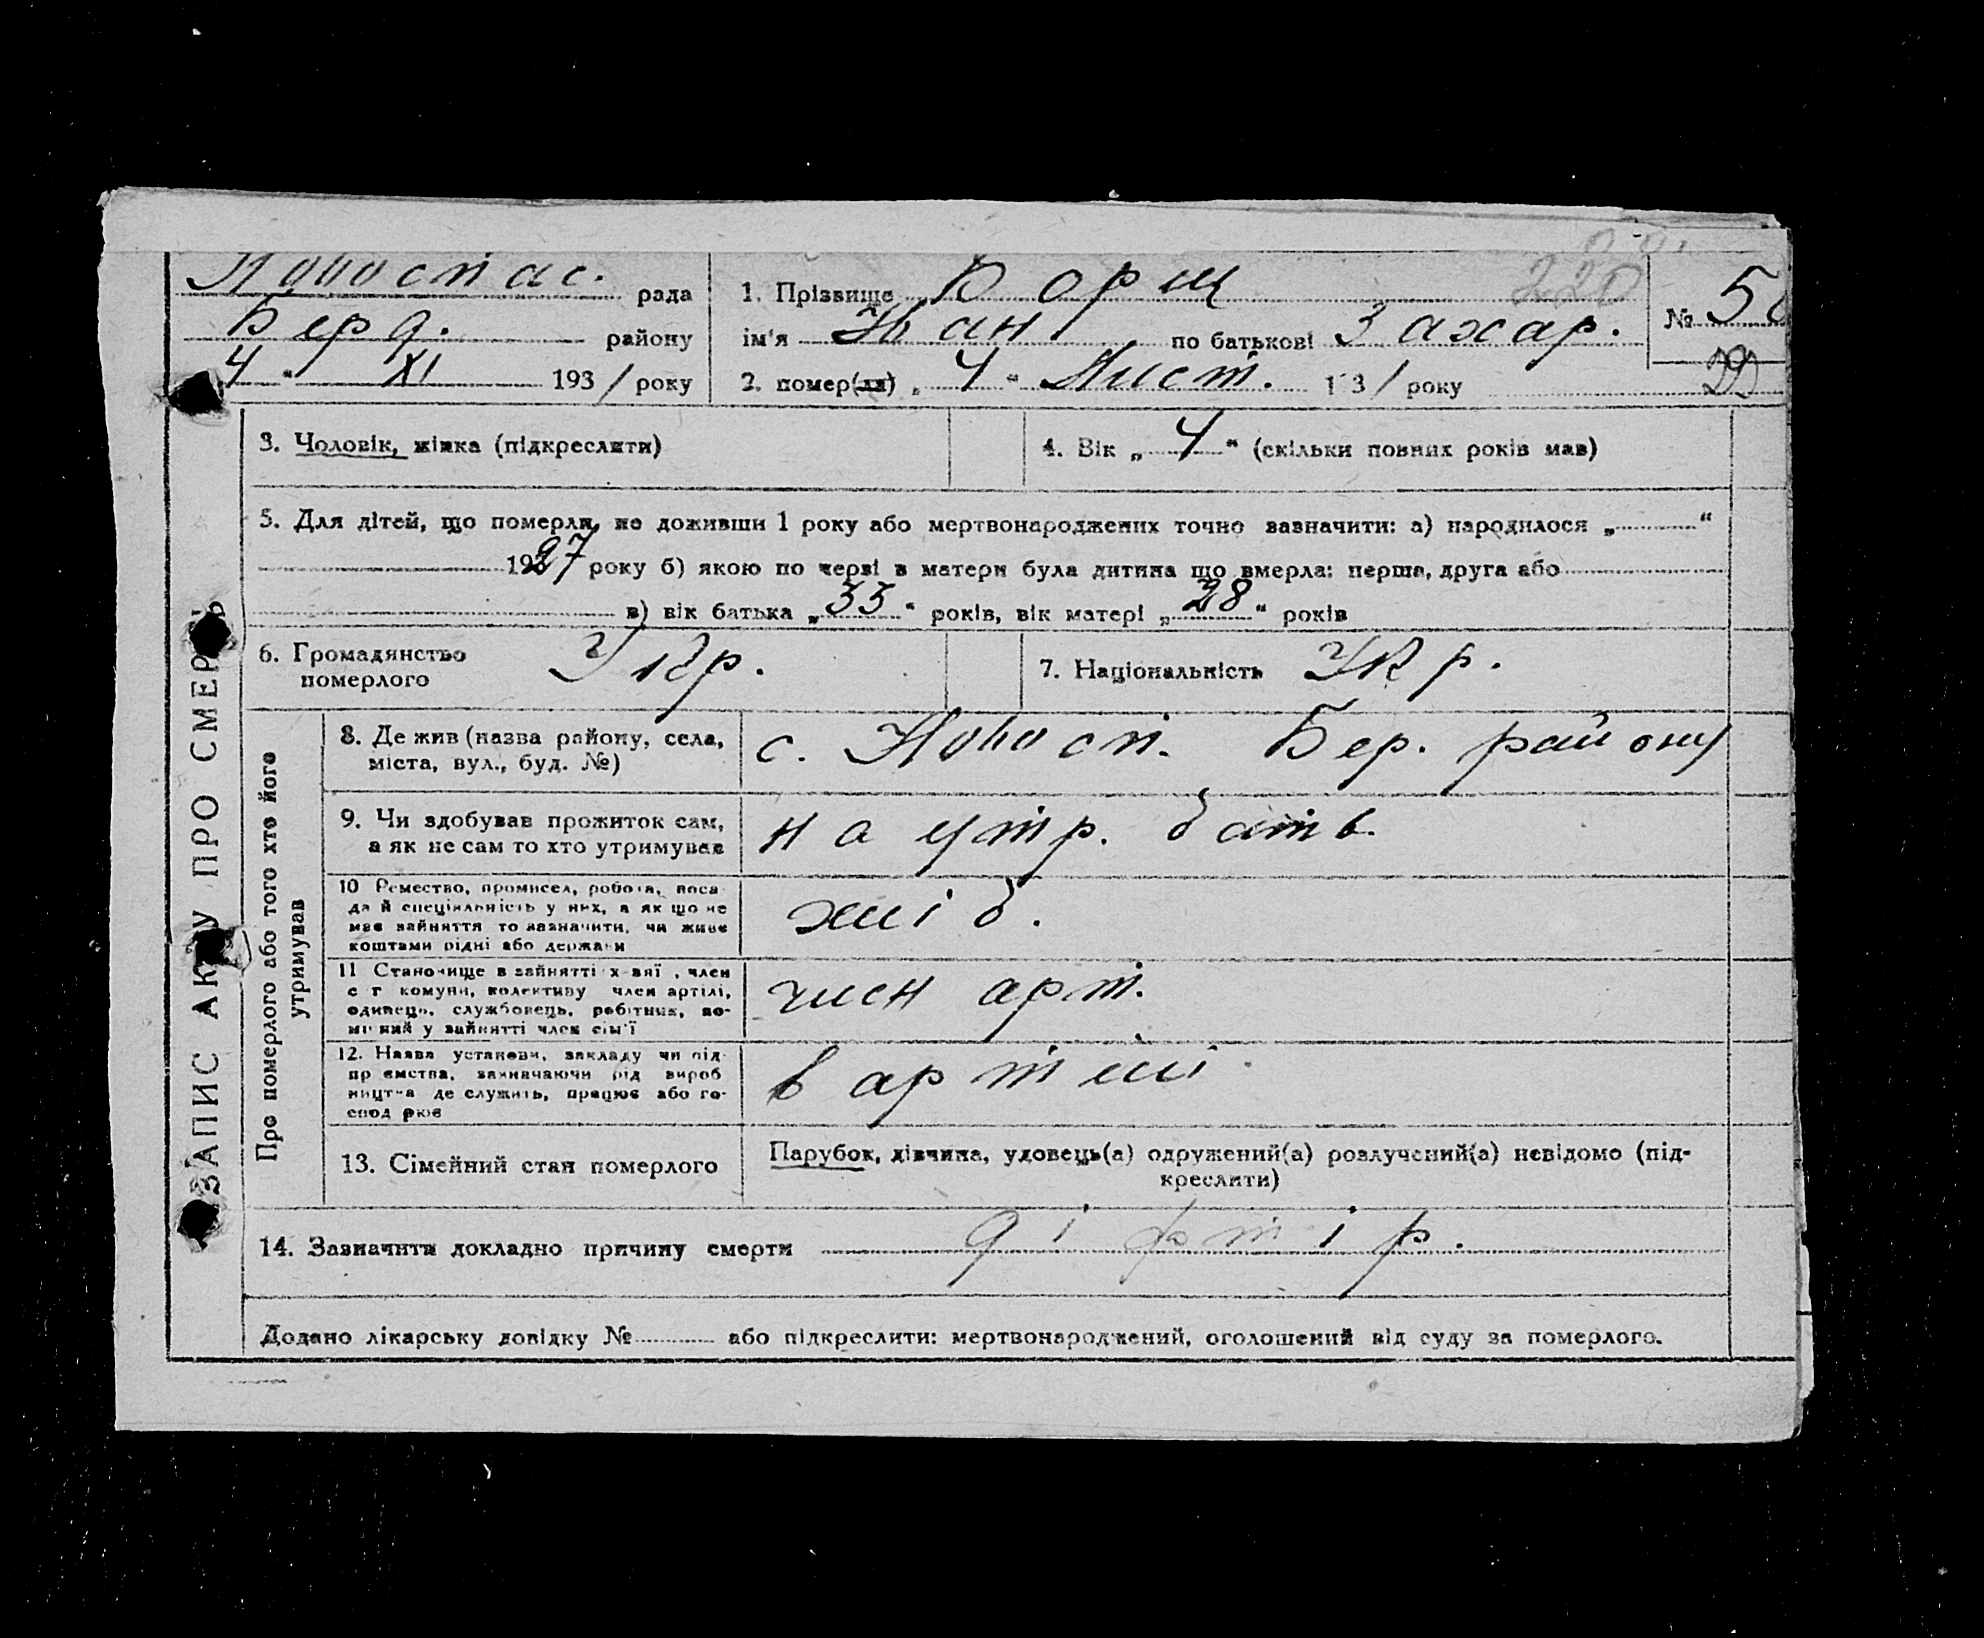 ЗАПИС АКТУ ПРО СМЕРТЬ
Новоспас. рада
Берд. району
4 " XI 1931 року
1. Прізвище Борщ
220
№ 50
ім'я Іван по батькові Захар.
2. помер(ла) „ 4 " Лист. 1931 року
29
3. Чоловік, жінка (підкреслити)
4. Вік „ 4 " (скільки повних років мав)
5. Для дітей, що померли, не доживши 1 року або мертвонароджених точно зазначити: а) народилося „ "
1927 року б) якою по черзі в матери була дитина що вмерла: перша, друга або
в) вік батька „ 35 " років, вік матері „ 28 " років
6. Громадянство
померлого Укр.
7. Національність Укр.
Про померлого або того хто його
утримував
8. Де жив (назва району, села,
міста, вул., буд. №)
с. Новосп. Бер. району
9. Чи здобував прожиток сам,
а як не сам то хто утримував
на утр. батьк.
10 Ремество, промисел, робота, поса-
да й спеціяльність у них, а як що не
має зайняття то зазначити, чи живе
коштами рідні або держави
хліб.
11 Становище в зайнятті член
с г комуни, колективу член артілі,
одинець, службовець, робітник, по-
мічний у зайнятті член сім'ї
член арт.
12. Назва установи, закладу чи під-
приємства, зазначаючи рід вироб
ництва де служить, працює або го-
спод рює
в артілі
13. Сімейний стан померлого
Парубок, дівчина, удовець(а) одружений(а) розлучений(а) невідомо (під-
креслити)
14. Зазначити докладно причину смерти діфтір.
Додано лікарську довідку № або підкреслити: мертвонароджений, оголошений від суду за померлого.